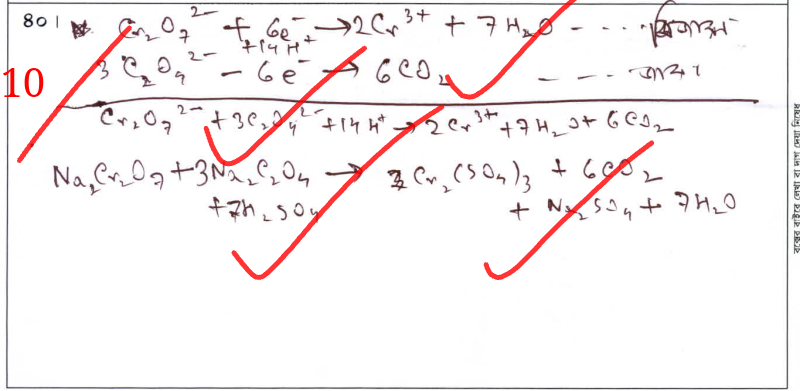 80।
Cr₂O₇²⁻ + 6e⁻ + 14H⁺ → 2Cr³⁺ + 7H₂O - - - - বিজারণ
10
3C₂O₄²⁻ - 6e⁻ → 6CO₂ - - - - জারণ
Cr₂O₇²⁻ + 3C₂O₄²⁻ + 14H⁺ → 2Cr³⁺ + 7H₂O + 6CO₂
Na₂Cr₂O₇ + 3Na₂C₂O₄ → Cr₂(SO₄)₃ + 6CO₂
+ 7H₂SO₄ + Na₂SO₄ + 7H₂O
বক্সের বাইরে লেখা বা দাগ দেয়া নিষেধ